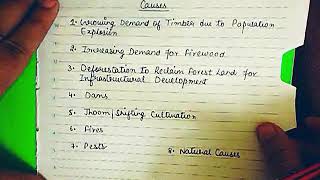 Causes
1. Growing Demand of Timber due to Population
Explosion
2. Increasing Demand for Firewood
3. Deforestation to Reclaim Forest Land for
Infrastructural Development
4. Dams
5. Jhoom/Shifting Cultivation
6. Fires
7. Pests
8. Natural Causes